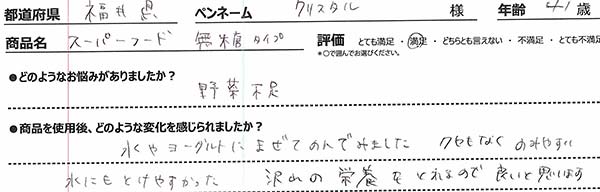 都道府県 福井県 ペンネーム クリスタル 様 年齢 41 歳
商品名 スーパーフード 無糖タイプ 評価 ・とても満足・満足・どちらも言えない・不満足・とても不満足
*○で囲んでお選びください。
●どのようなお悩みがありましたか?
野菜不足
●商品を使用後、どのような変化を感じられましたか?
水やヨーグルトにまぜてのんでみました クセもなくのみやすい
水にもとけやすかった 沢山の栄養をとれるので良いと思います